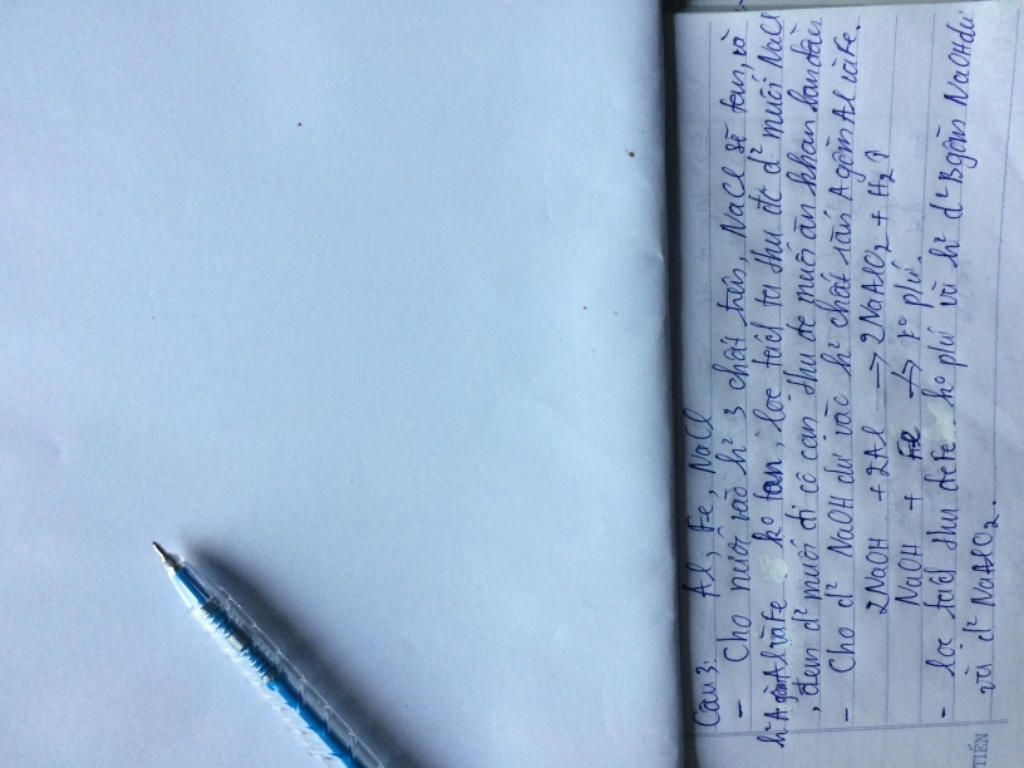 Câu 3: Al, Fe, NaCl
- Cho nước vào h² 3 chất trên, NaCl sẽ tan, và
h² A gồm Al và Fe ko tan, lọc tách ta thu đc d² muối NaCl
, đem d² muối đi cô cạn thu đc muối ăn khan ban đầu
- Cho d² NaOH dư vào h² chất rắn A gồm Al và Fe.
2NaOH + 2Al → 2NaAlO₂ + H₂?
NaOH + Fe ↛ ko p/ư.
- lọc tách thu đc Fe ko p/ư và h² d² B gồm NaOH dư
và d² NaAlO₂.
TIẾN